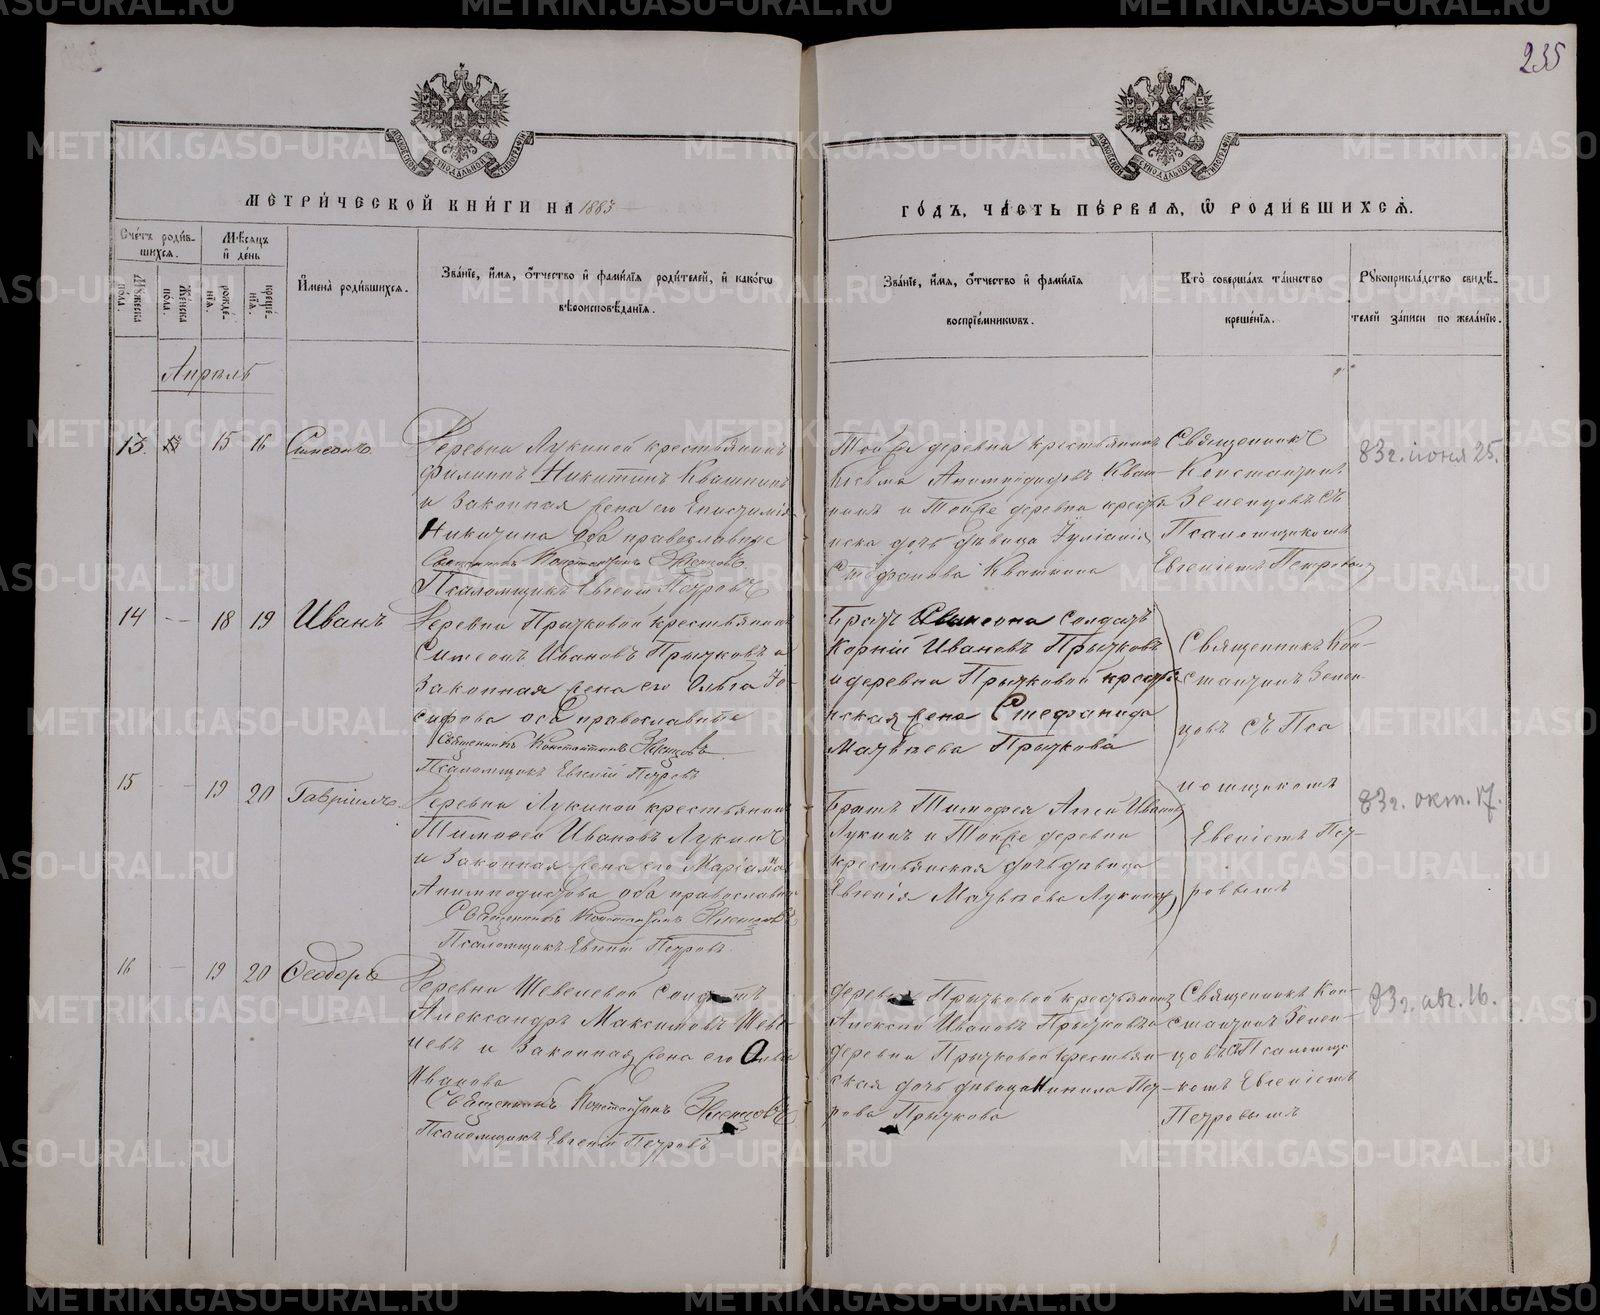 235
МЕТРИЧЕСКОЙ КНИГИ НА 1883
ГОДЪ, ЧАСТЬ ПЕРВАЯ, Ѿ РОДИВШИХСЯ.
Счетъ родившихся.
Мужеска пола.
Женска пола.
Мѣсяцъ и день
рожденія.
крещенія.
Имена родившихся.
Званіе, имя, отчество и фамилія родителей, и какого
вѣроисповѣданія.
Званіе, имя, отчество и фамилія
воспріемниковъ.
Кто совершалъ таинство
крещенія.
Рукоприкладство свидѣ-
телей записи по желанію.
Апрѣль
13. 15 16 Симеонъ
Деревни Лукиной крестьянинъ
Филиппъ Никитинъ Квашнинъ
и законная жена его Епистимія
Никитина оба православные
Священникъ Константинъ Земенцовъ
Псаломщикъ Евгеній Петровъ
Той же деревни крестьянинъ
Косьма Анемподистовъ Кваш-
нинъ и той же деревни кресть-
нска дочь дѣвица Іуліанія
Стефанова Квашнина
Священникъ
Константинъ
Земенцовъ съ
Псаломщикомъ
Евгеніемъ Петровымъ
83 г. іюня 25.
14 18 19 Иванъ
Деревни Прытковой крестьянинъ
Симеонъ Ивановъ Прытковъ и
законная жена его Ольга Іо-
сифова оба православные
Священникъ Константинъ Земенцовъ
Псаломщикъ Евгеній Петровъ
Братъ Симеона солдатъ
Корній Ивановъ Прытковъ
и деревни Прытковой кресть-
нская жена Стефанида
Матвѣева Прыткова
Священникъ Кон-
стантинъ Земен-
цовъ съ Пса
ломщикомъ
Евгеніемъ Пет-
ровымъ
15 19 20 Гавріилъ
Деревни Лукиной крестьянинъ
Тимофей Ивановъ Лукинъ
и законная жена его Маріамна
Анемподистова оба православные
Священникъ Константинъ Земенцовъ
Псаломщикъ Евгеній Петровъ
Братъ Тимофея Агей Ивановъ
Лукинъ и той же деревни
крестьянская дочь дѣвица
Евгенія Матвѣева Лукина
83 г. окт. 17.
16 19 20 Ѳеодоръ
Деревни Шевелевой солдатъ
Александръ Максимовъ Шеве-
левъ и законная жена его Ольга
Иванова
Священникъ Константинъ Земенцовъ
Псаломщикъ Евгеній Петровъ
деревни Прытковой крестьянинъ
Алексѣй Ивановъ Прытковъ и
деревни Прытковой крестьян-
ская дочь дѣвица Нинила Пет-
рова Прыткова
Священникъ Кон-
стантинъ Земен-
цовъ съ Псаломщи-
комъ Евгеніемъ
Петровымъ
83 г. авг. 16.
METRIKI.GASO-URAL.RU